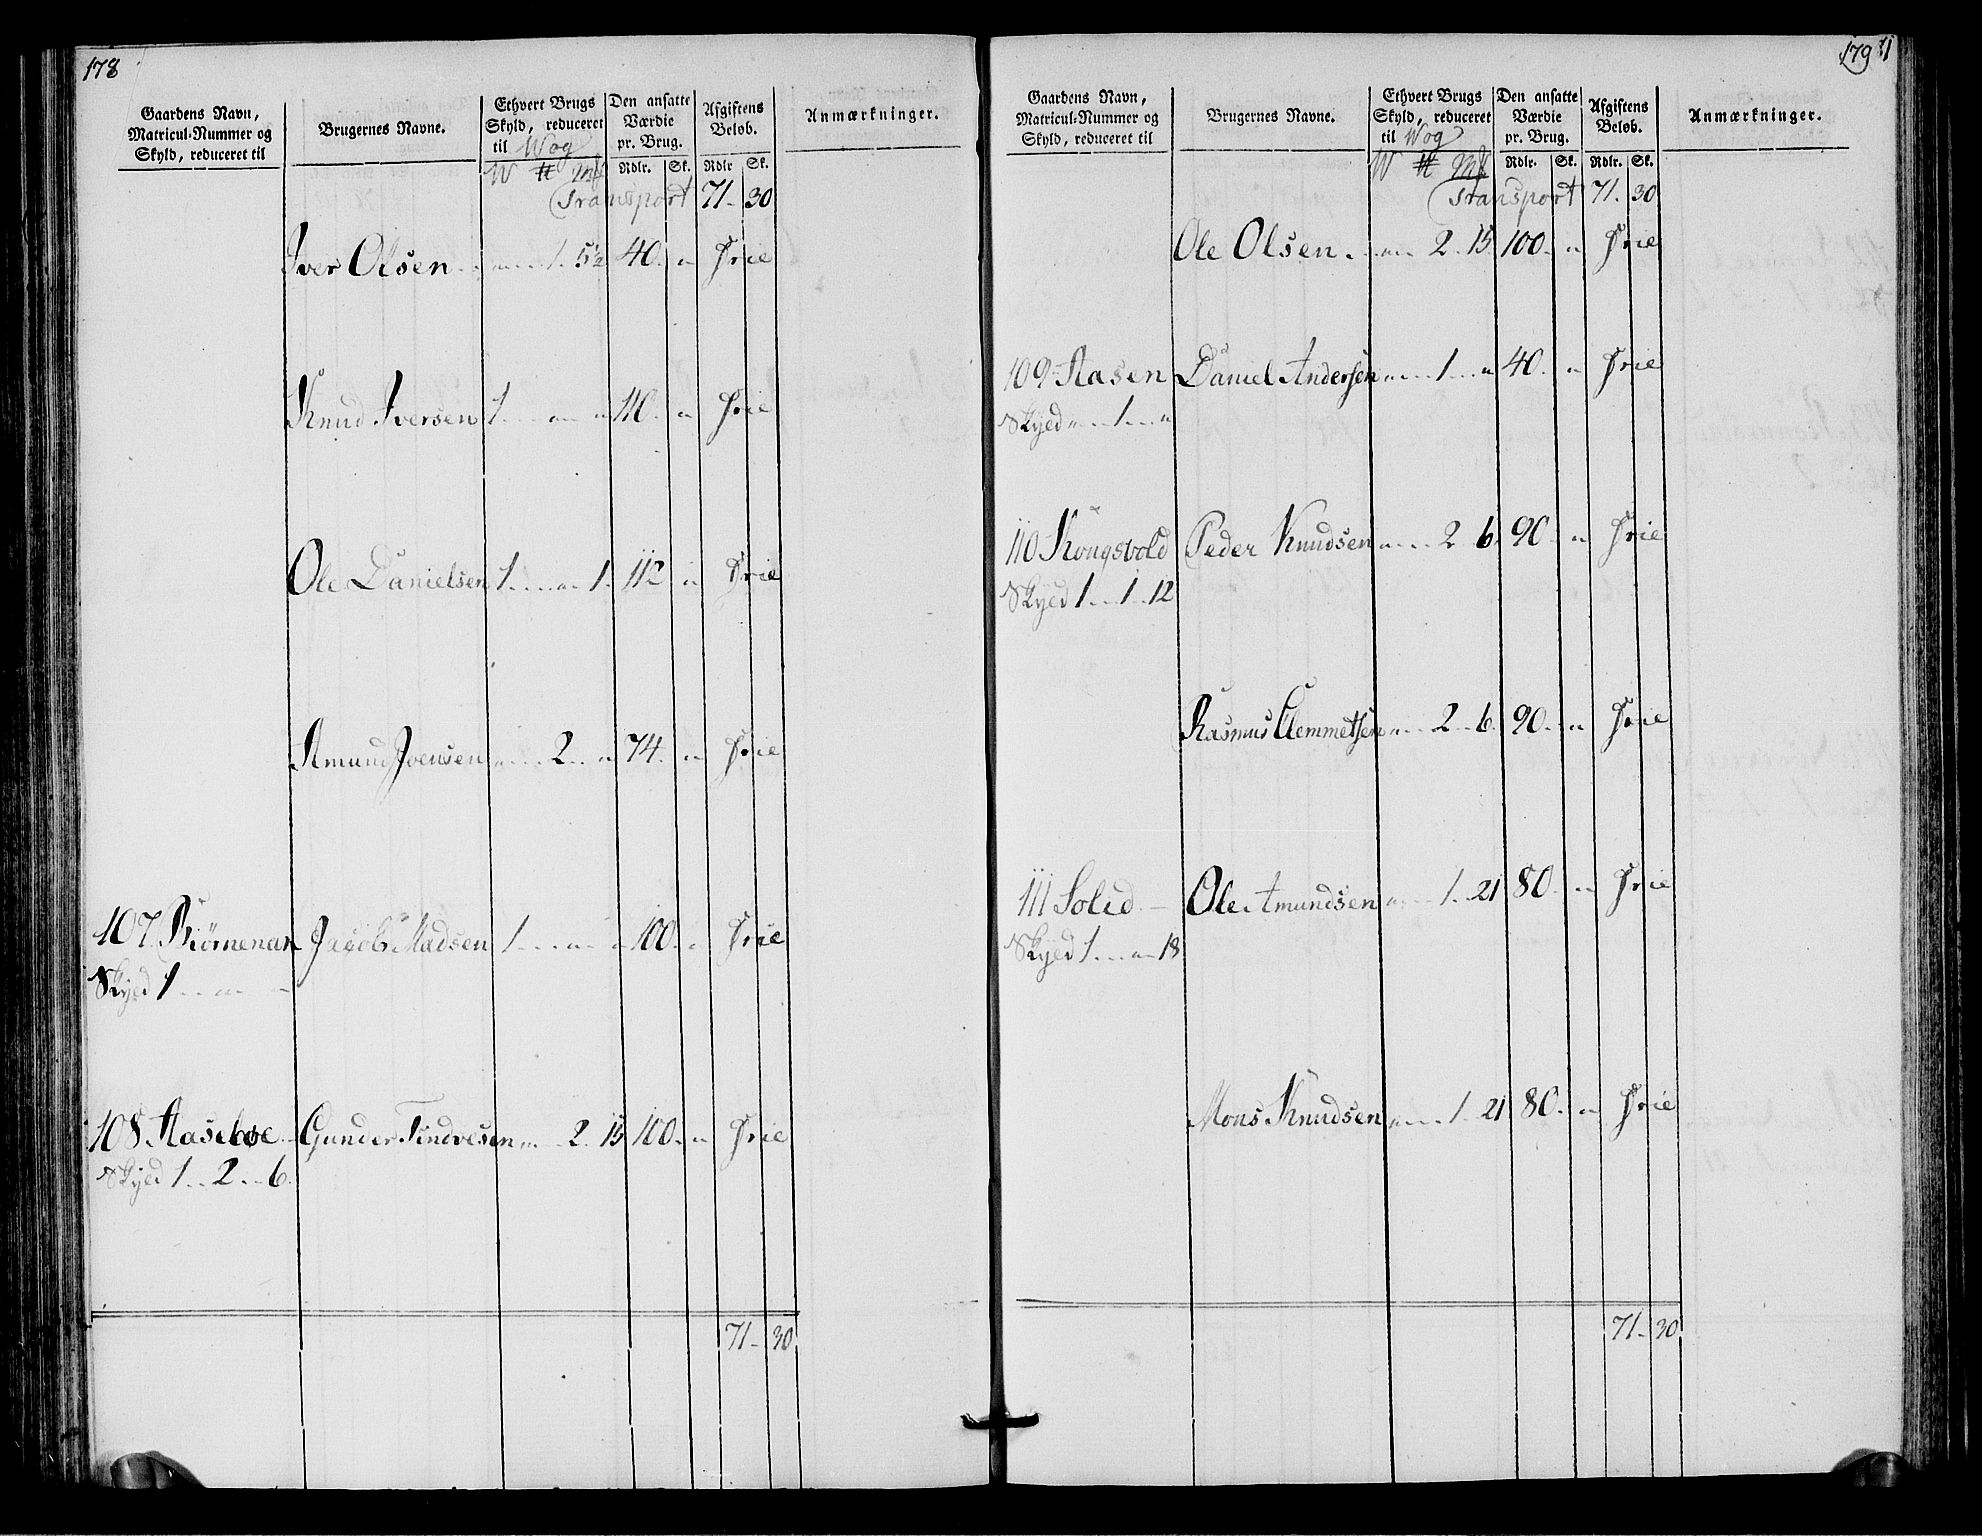 178
Gaardens Navn, Matricul-Nummer og Skyld, reduceret til
Brugernes Navne.
Ethvert Brugs Skyld, reduceret til Wog
Den ansatte Værdie pr. Brug.
Afgiftens Beløb.
Anmærkninger.
W ## Mk Rdlr. Sk. Rdlr Sk.
Transport 71 30
Iver Olsen 1 5½ 40 " Frie
Knud Iversen 1 " " 110 " Frie
Ole Danielsen 1 " 1 112 " Frie
Amund Joensen " 2 " 74 " Frie
107 Biörnenan Jacob Madsen 1 " " 100 " Frie
Skyld 1 " "
108 Aaseboe Gunder Tindvesen " 2 15 100 " Frie
Skyld 1 2 6
71 30
179
Gaardens Navn, Matricul-Nummer og Skyld, reduceret til
Brugernes Navne.
Ethvert Brugs Skyld, reduceret til Wog
Den ansatte Værdie pr. Brug.
Afgiftens Beløb.
Anmærkninger.
W ## Mk Rdlr. Sk. Rdlr. Sk.
Transport 71 30
Ole Olsen " 2 15 100 " Frie
109 Aasen Daniel Andersen " 1 " 40 " Frie
Skyld " 1 "
110 Kongsvold Peder Knudsen " 2 6 90 " Frie
Skyld 1 1 12
Rasmus Clemmetsen " 2 6 90 " Frie
111 Solid Ole Amundsen " 1 21 80 " Frie
Skyld 1 " 18
Mons Knudsen " 1 21 80 " Frie
71 30